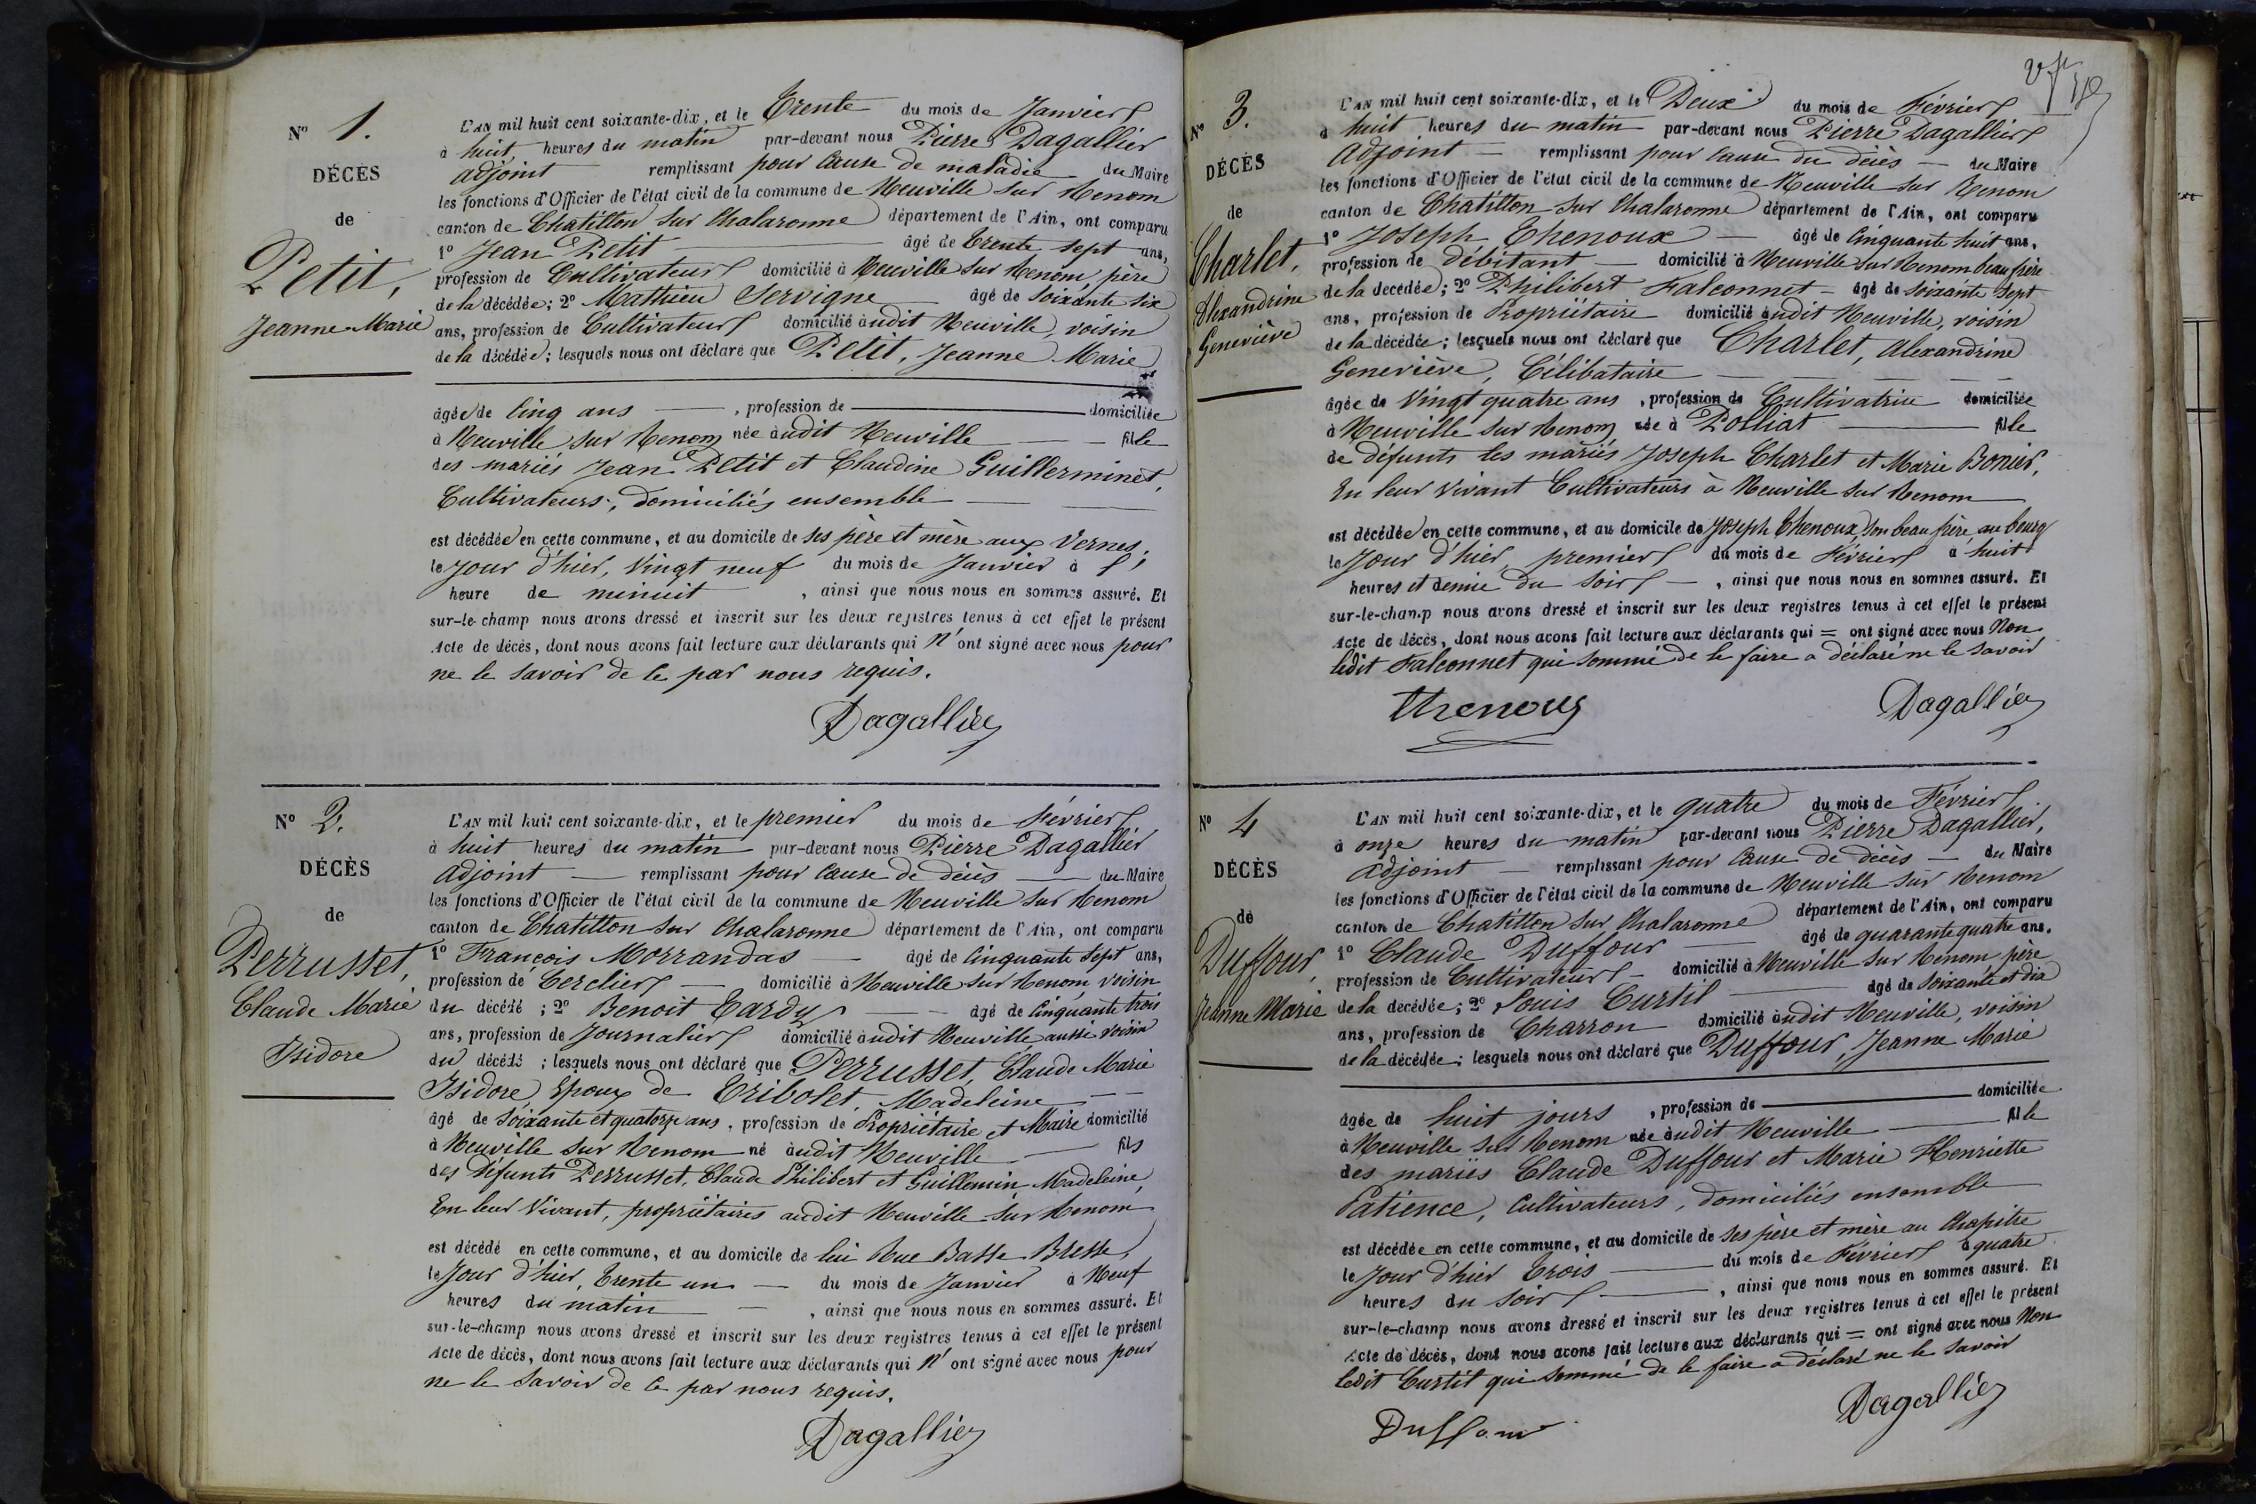 N° 1.
DÉCÈS
de
Petit,
Jeanne-Marie
L'AN mil huit cent soixante-dix, et le Trente du mois de Janvier
à huit heures du matin par-devant nous Pierre Dagallier
adjoint remplissant pour cause de maladie du Maire
les fonctions d'Officier de l'état civil de la commune de Neuville sur Renom
canton de Chatillon sur Chalaronne département de l'Ain, ont comparu
1° Jean Petit âgé de trente sept ans,
profession de Cultivateur domicilié à Neuville sur Renom, père
de la décédée; 2° Mathieu Servigne âgé de soixante six
ans, profession de Cultivateur domicilié audit Neuville, voisin
de la décédée; lesquels nous ont déclaré que Petit, Jeanne Marie
âgée de Cinq ans, profession de domiciliée
à Neuville sur Renom née audit Neuville fille
des mariés Jean Petit et Claudine Guillerminet,
Cultivateurs, domiciliés ensemble
est décédée en cette commune, et au domicile de ses père et mère aux Vernes,
le Jour d'hier, Vingt neuf du mois de Janvier à l'
heure de minuit, ainsi que nous nous en sommes assuré. Et
sur-le-champ nous avons dressé et inscrit sur les deux registres tenus à cet effet le présent
Acte de décès, dont nous avons fait lecture aux déclarants qui n'ont signé avec nous pour
ne le savoir de ce par nous requis.
Dagallier
N° 2.
DÉCÈS
de
Perrusset,
Claude Marie
Isidore
L'AN mil huit cent soixante-dix, et le premier du mois de Février
à huit heures du matin par-devant nous Pierre Dagallier
adjoint remplissant pour cause de décès du Maire
les fonctions d'Officier de l'état civil de la commune de Neuville sur Renom
canton de Chatillon sur Chalaronne département de l'Ain, ont comparu
1° François Morrandas âgé de Cinquante sept ans,
profession de Cerclier domicilié à Neuville sur Renom, voisin
du décédé; 2° Benoit Tardy âgé de Cinquante trois
ans, profession de Journalier domicilié audit Neuville aussi voisin
du décédé; lesquels nous ont déclaré que Perrusset, Claude Marie
Isidore, Epoux de Tribolet, Madeleine
âgé de Soixante et quatorze ans, profession de Propriétaire et Maire domicilié
à Neuville sur Renom né audit Neuville fils
des Défunts Perrusset, Claude Philibert et Guillemin Madeleine,
En leur Vivant, propriétaires audit Neuville sur Renom
est décédé en cette commune, et au domicile de lui Rue Basse Bresse,
le Jour d'hier, trente un du mois de Janvier à Neuf
heures du matin, ainsi que nous nous en sommes assuré. Et
sur-le-champ nous avons dressé et inscrit sur les deux registres tenus à cet effet le présent
Acte de décès, dont nous avons fait lecture aux déclarants qui n'ont signé avec nous pour
ne le Savoir de ce par nous requis.
Dagallier
N° 3.
DÉCÈS
de
Charlet,
Alexandrine
Geneviève
L'AN mil huit cent soixante-dix, et le Deux du mois de Février
à huit heures du matin par-devant nous Pierre Dagallier
Adjoint remplissant pour cause du décès du Maire
les fonctions d'Officier de l'état civil de la commune de Neuville sur Renom
canton de Chatillon sur Chalaronne département de l'Ain, ont comparu
1° Joseph Thenoux âgé de Cinquante huit ans,
profession de débitant domicilié à Neuville sur Renom beau frère
de la décédée; 2° Philibert Falconnet âgé de soixante sept
ans, profession de Propriétaire domicilié audit Neuville, voisin
de la décédée; lesquels nous ont déclaré que Charlet, Alexandrine
Geneviève, Célibataire
âgée de Vingt quatre ans, profession de Cultivatrice domiciliée
à Neuville sur Renom née à Polliat fille
de défunts les mariés Joseph Charlet et Marie Bonier,
En leur Vivant Cultivateurs à Neuville sur Renom
est décédée en cette commune, et au domicile de Joseph Thenoux, son beau frère, au bourg
le Jour d'hier, premier du mois de Février à huit
heures et demie du soir, ainsi que nous nous en sommes assuré. Et
sur-le-champ nous avons dressé et inscrit sur les deux registres tenus à cet effet le présent
Acte de décès, dont nous avons fait lecture aux déclarants qui = ont signé avec nous Non
ledit Falconnet qui sommé de le faire a déclaré ne le savoir
Thenoux
Dagallier
N° 4
DÉCÈS
de
Duffour,
Jeanne Marie
L'AN mil huit cent soixante-dix, et le quatre du mois de Février
à onze heures du matin par-devant nous Pierre Dagallier,
Adjoint remplissant pour cause de décès du Maire
les fonctions d'Officier de l'état civil de la commune de Neuville sur Renom
canton de Chatillon sur Chalaronne département de l'Ain, ont comparu
1° Claude Duffour âgé de quarante quatre ans,
profession de Cultivateur domicilié à Neuville sur Renom père
de la décédée; 2° Louis Curtil âgé de soixante et dix
ans, profession de Charron domicilié audit Neuville, voisin
de la décédée; lesquels nous ont déclaré que Duffour, Jeanne Marie
âgée de huit jours, profession de domiciliée
à Neuville sur Renom née audit Neuville fille
des mariés Claude Duffour et Marie Henriette
Patience, Cultivateurs, domiciliés ensemble
est décédée en cette commune, et au domicile de ses père et mère au Chapitre
le Jour d'hier trois du mois de Février à quatre
heures du soir, ainsi que nous nous en sommes assuré. Et
sur-le-champ nous avons dressé et inscrit sur les deux registres tenus à cet effet le présent
Acte de décès, dont nous avons fait lecture aux déclarants qui = ont signé avec nous Non
ledit Curtil qui sommé de le faire a déclaré ne le savoir
Duffour
Dagallier